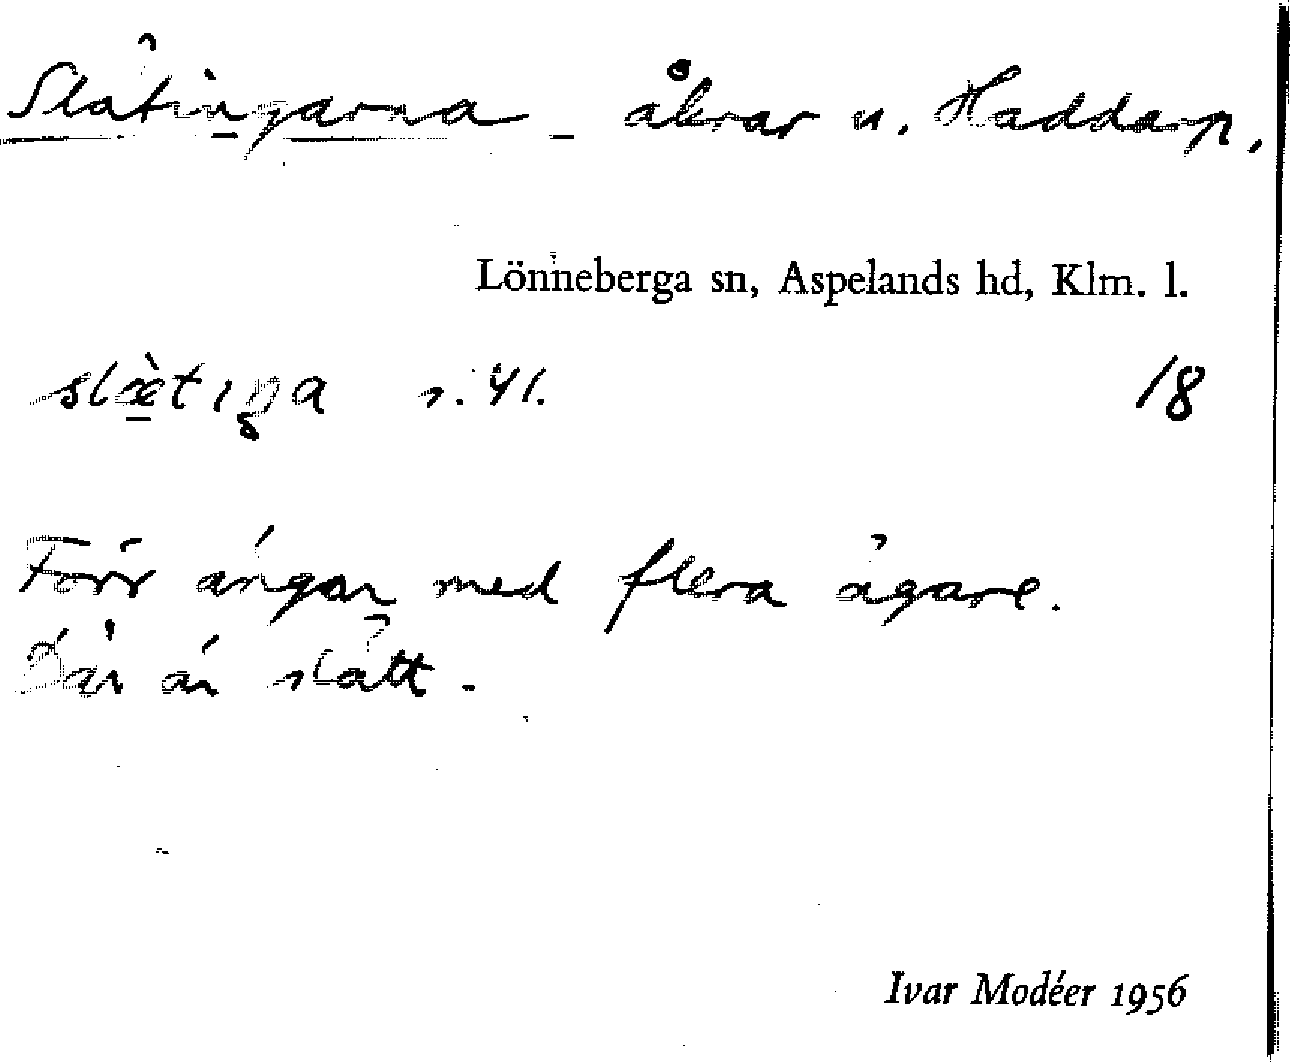 Slätingarna – åkrar u. Haddarp.
Lönneberga sn, Aspelands hd, Klm. l.
slæ̀tıŋa s. 41. 18
Förr ängar med flera ägare.
Där är slätt.
Ivar Modéer 1956